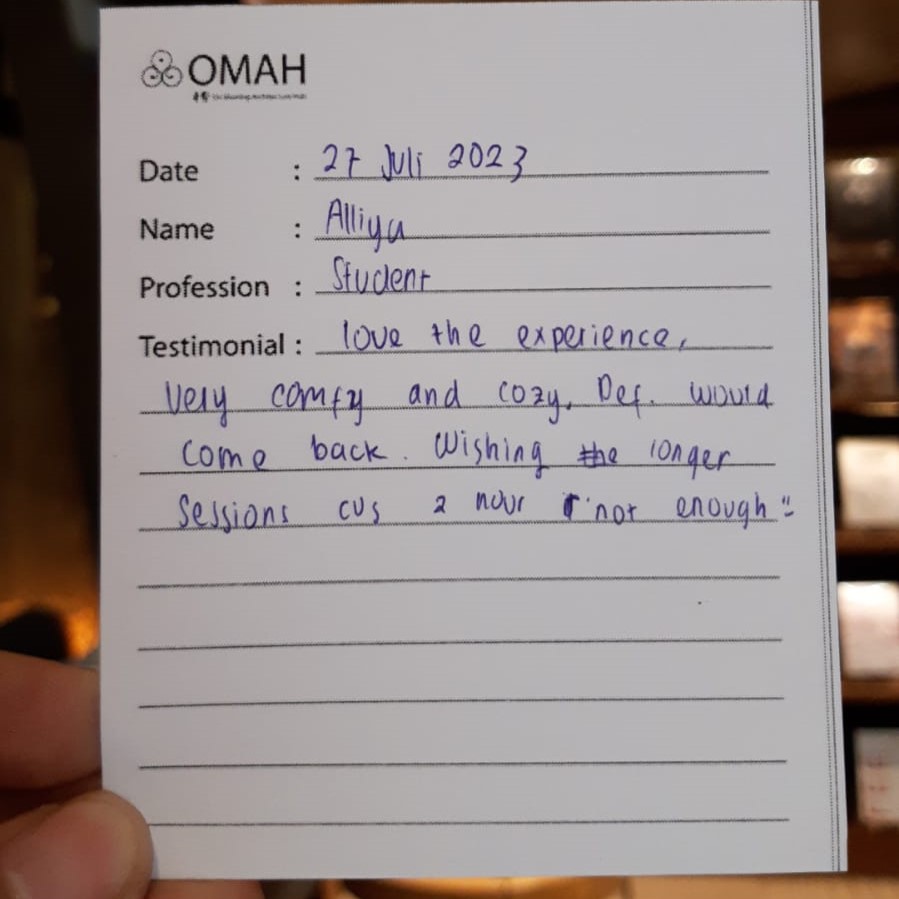 OMAH
Date : 27 Juli 2023
Name : Alliya
Profession : Student
Testimonial : love the experience,
very comfy and cozy. Def. would
come back. Wishing the longer
sessions cus 2 hour not enough